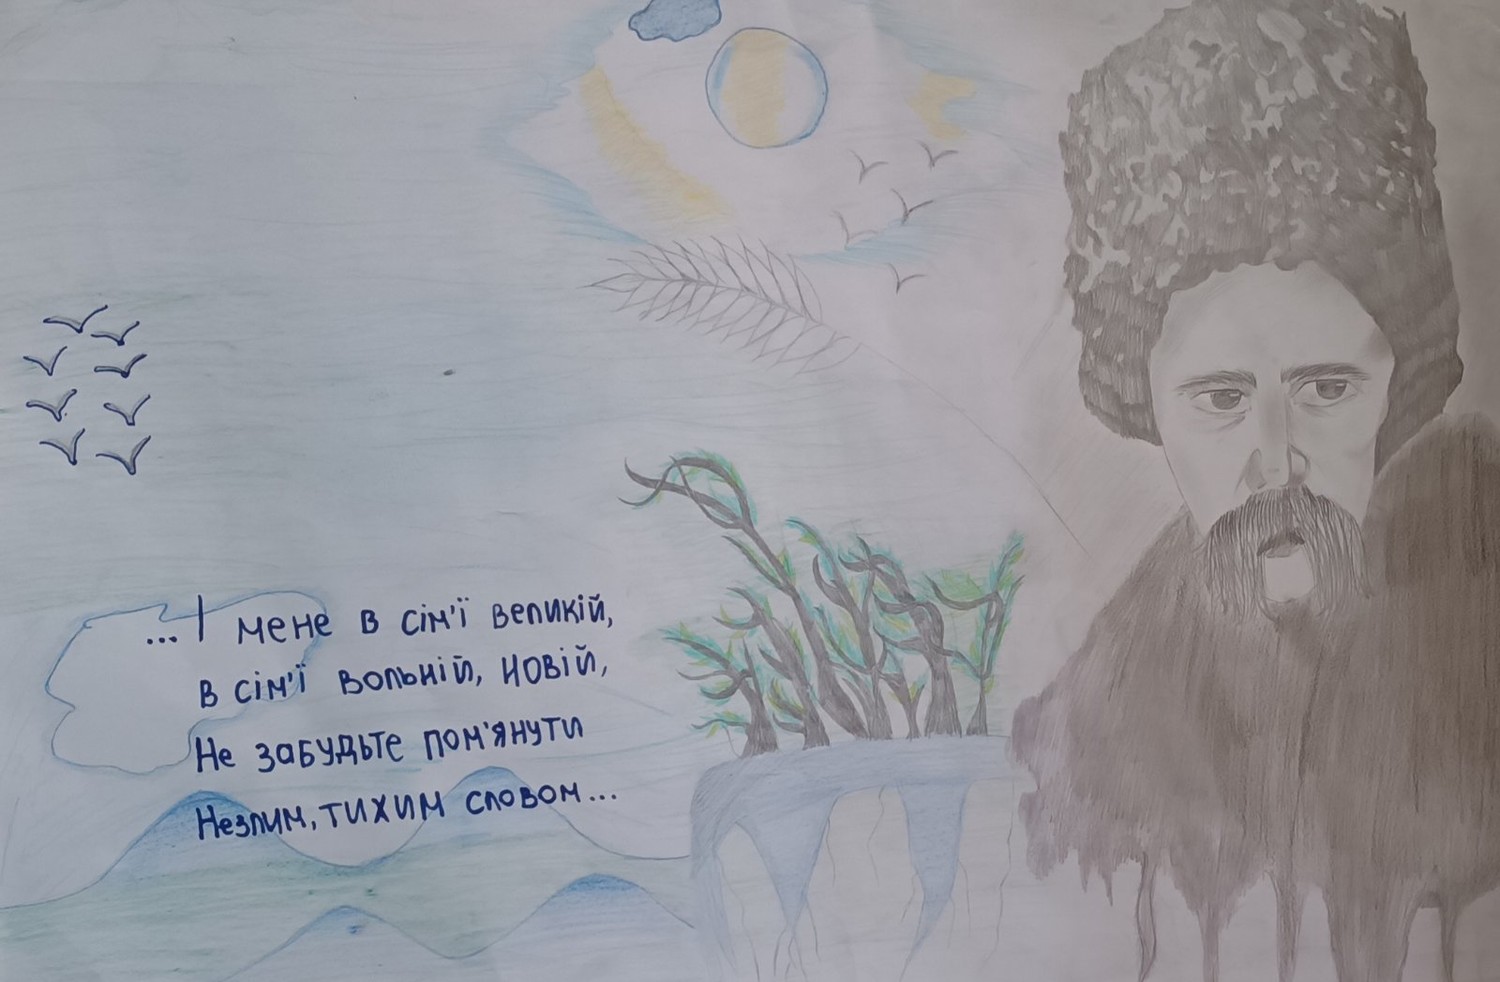 ...І мене в сім'ї великій,
в сім'ї вольній, новій,
Не забудьте пом'янути
Незлим, тихим словом...